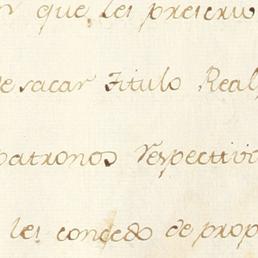 que les prescriv
sacar Titulo Real
patronos respectivo
les concedo de prop